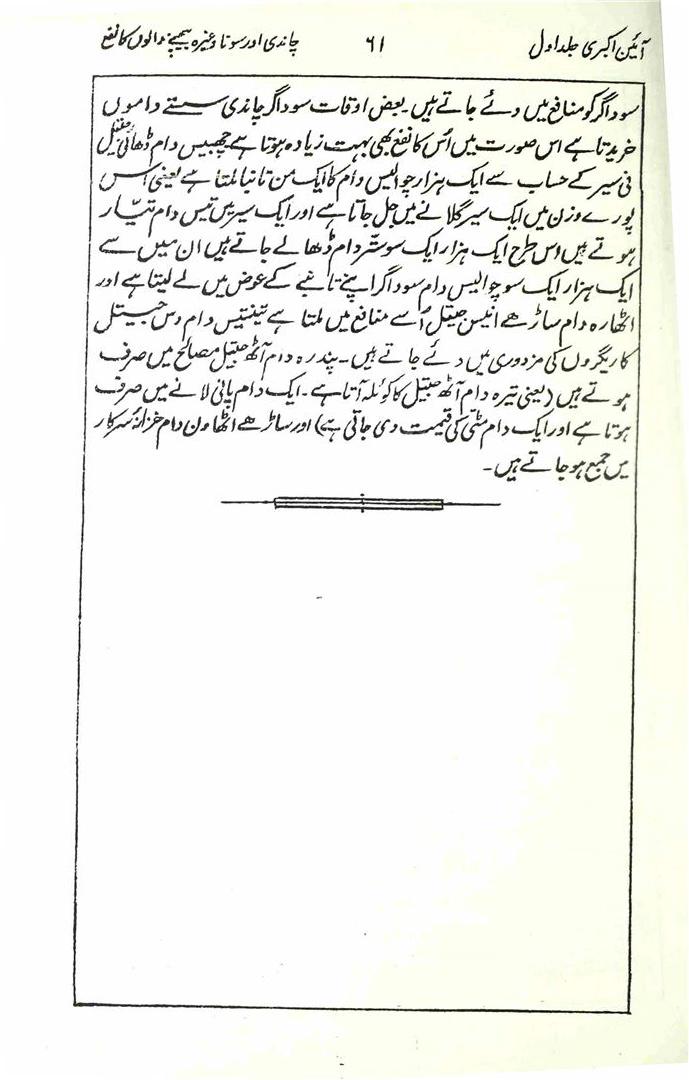 آئین اکبری جلد اول ۶۱ چاندی اور سونا وغیرہ بیچنے والوں کا نفع
سوداگر کو منافع میں دئے جاتے ہیں۔ بعض اوقات سوداگر چاندی سستے داموں
خریدتا ہے اس صورت میں اُس کا نفع بھی بہت زیادہ ہوتا ہے چھبیس دام ڈھائی جیتل
فی سیر کے حساب سے ایک ہزار چوالیس دام کا ایک من تانبا ملتا ہے یعنی اس
پورے وزن میں ایک سیر گلانے میں جل جاتا ہے اور ایک سیر میں تیس دام تیّار
ہوتے ہیں اس طرح ایک ہزار ایک سو ستّر دام ڈھالے جاتے ہیں ان میں سے
ایک ہزار ایک سو چوالیس دام سوداگر اپنے تانبے کے عوض میں لے لیتا ہے اور
اٹھارہ دام ساڑھے انیس جیتل اُسے منافع میں ملتا ہے تینتیس دام دس جیتل
کاریگروں کی مزدوری میں دئے جاتے ہیں۔ پندرہ دام آٹھ جیتل مصالح میں صرف
ہوتے ہیں (یعنی تیرہ دام آٹھ جیتل کا کوئلہ آتا ہے۔ ایک دام پانی لانے میں صرف
ہوتا ہے اور ایک دام مٹی کی قیمت دی جاتی ہے) اور ساڑھے اٹھاون دام خزانۂ سرکار
میں جمع ہو جاتے ہیں۔